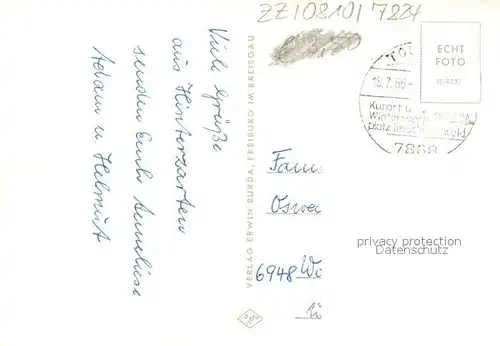 ZZ|0810|7824
Viele Grüße
aus Hinterzarten
senden Euch Anneliese
Adam u. Helmut
VERLAG ERWIN BURDA, FREIBURG IM BREISGAU
ECHT
FOTO
18.7.66
Kurort u
Wintersport
platz
7868
Fam
Oswa
6948 Wa
privacy protection
Datenschutz